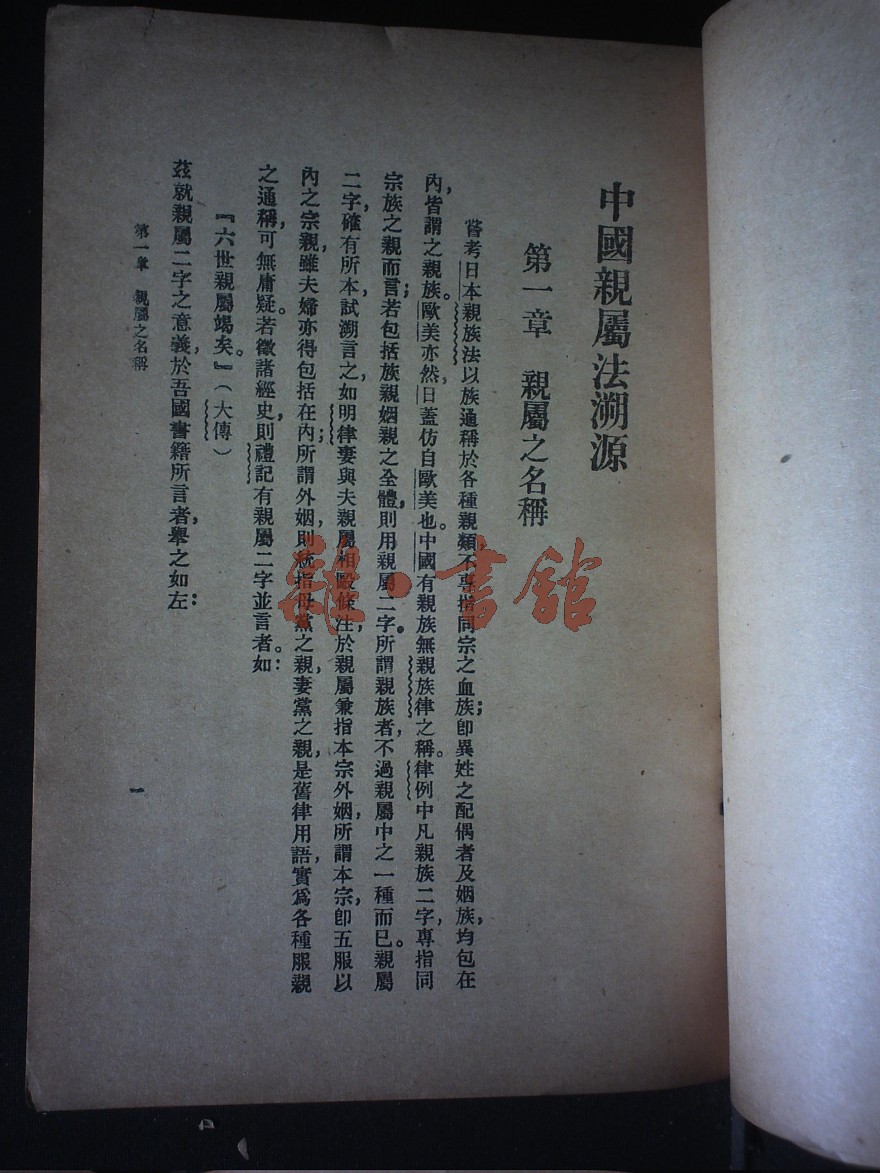 中國親屬法溯源
第一章　親屬之名稱
嘗考日本親族法以族通稱於各種親類，不專指同宗之血族；卽異姓之配偶者及姻族，均包在
內，皆謂之親族。歐美亦然，日蓋仿自歐美也。中國有親族無親族律之稱。律例中凡親族二字，專指同
宗族之親而言；若包括族親姻親之全體，則用親屬二字。所謂親族者，不過親屬中之一種而已。親屬
二字，確有所本，試溯言之，如明律妻與夫親屬相毆條注，於親屬兼指本宗外姻，所謂本宗，卽五服以
內之宗親，雖夫婦亦得包括在內；所謂外姻，則統指母黨之親，妻黨之親，是舊律用語，實爲各種服親
之通稱，可無庸疑。若徵諸經史，則禮記有親屬二字並言者。如：
『六世親屬竭矣。』（大傳）
茲就親屬二字之意義，於吾國書籍所言者，舉之如左：
第一章　親屬之名稱
一
雜·書館